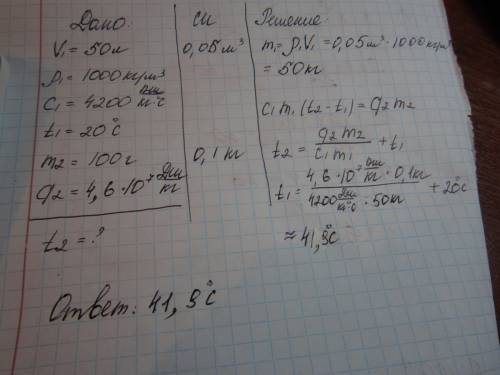 Дано:
V₁= 50л
ρ₁= 1000 кг/м³
C₁= 4200 Дж/кг°С
t₁= 20°С
m₂= 100г
q₂= 4,6·10⁷ Дж/кг
t₂= ?
СИ
0,05м³
0,1кг
Решение:
m₁= ρ₁V₁ = 0,05м³·1000кг/м³
= 50кг
C₁m₁(t₂-t₁)=q₂m₂
t₂= q₂m₂/C₁m₁ + t₁
t₁= 4,6·10⁷ Дж/кг·0,1кг/4200 Дж/кг°С·50кг + 20°С
≈ 41,9°С
Ответ: 41,9°С